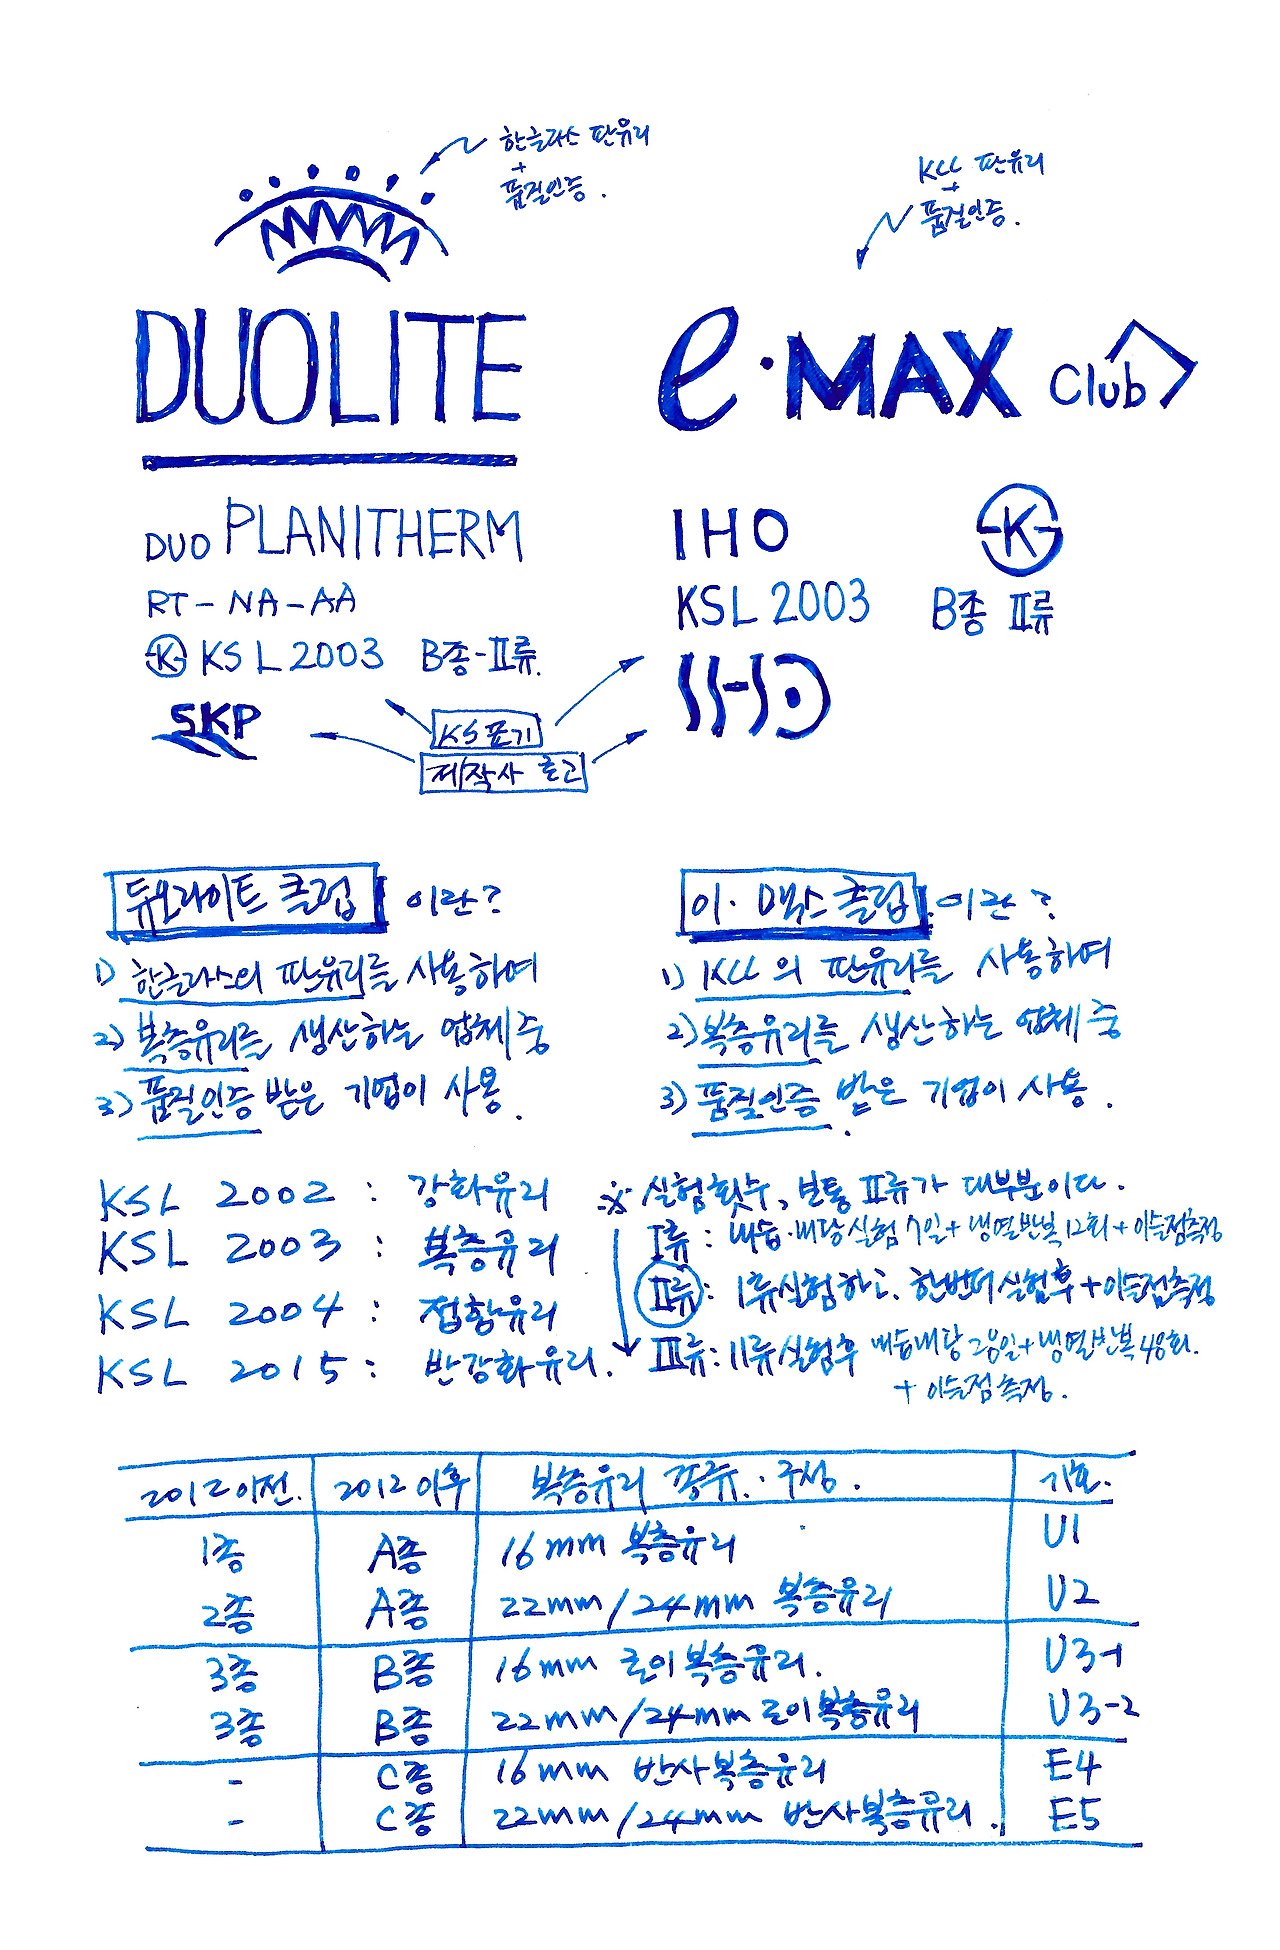 한글라스 판유리
+
품질인증.
KCC 판유리
+
품질인증.
DUOLITE
e·MAX Club
DUO PLANITHERM
RT-NA-AA
K KSL2003 B종-Ⅱ류.
SKP
IHO
K
KSL2003 B종 Ⅱ류
IHO
KS표기
제작사 로고
듀오라이트 클럽 이란?
1) 한글라스의 판유리를 사용하여
2) 복층유리를 생산하는 업체중
3) 품질인증 받은 기업이 사용.
이·맥스클럽 이란?
1) KCC의 판유리를 사용하여
2) 복층유리를 생산하는 업체중
3) 품질인증 받은 기업이 사용.
KSL 2002 : 강화유리
KSL 2003 : 복층유리
KSL 2004 : 접합유리
KSL 2015 : 반강화유리.
※ 실험횟수, 보통 Ⅱ류가 대부분이다.
Ⅰ류 : 내습·내광실험 7일+냉열반복12회+이슬점측정
Ⅱ류 : Ⅰ류실험하고. 한번더실험후+이슬점측정
Ⅲ류 : Ⅱ류실험후 내습내광 28일+냉열반복48회.
+ 이슬점측정.
2012이전. 2012이후 복층유리 종류.·구성. 기호.
1종 A종 16mm 복층유리 U1
2종 A종 22mm/24mm 복층유리 U2
3종 B종 16mm 로이복층유리. U3-1
3종 B종 22mm/24mm 로이복층유리 U3-2
- C종 16mm 반사복층유리 E4
- C종 22mm/24mm 반사복층유리. E5